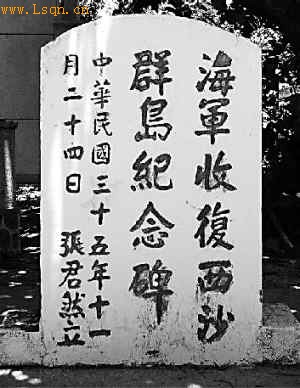 www.Lsqn.cn
海軍收復西沙
群島紀念碑
中華民國三十五年十一
月二十四日 張君然立